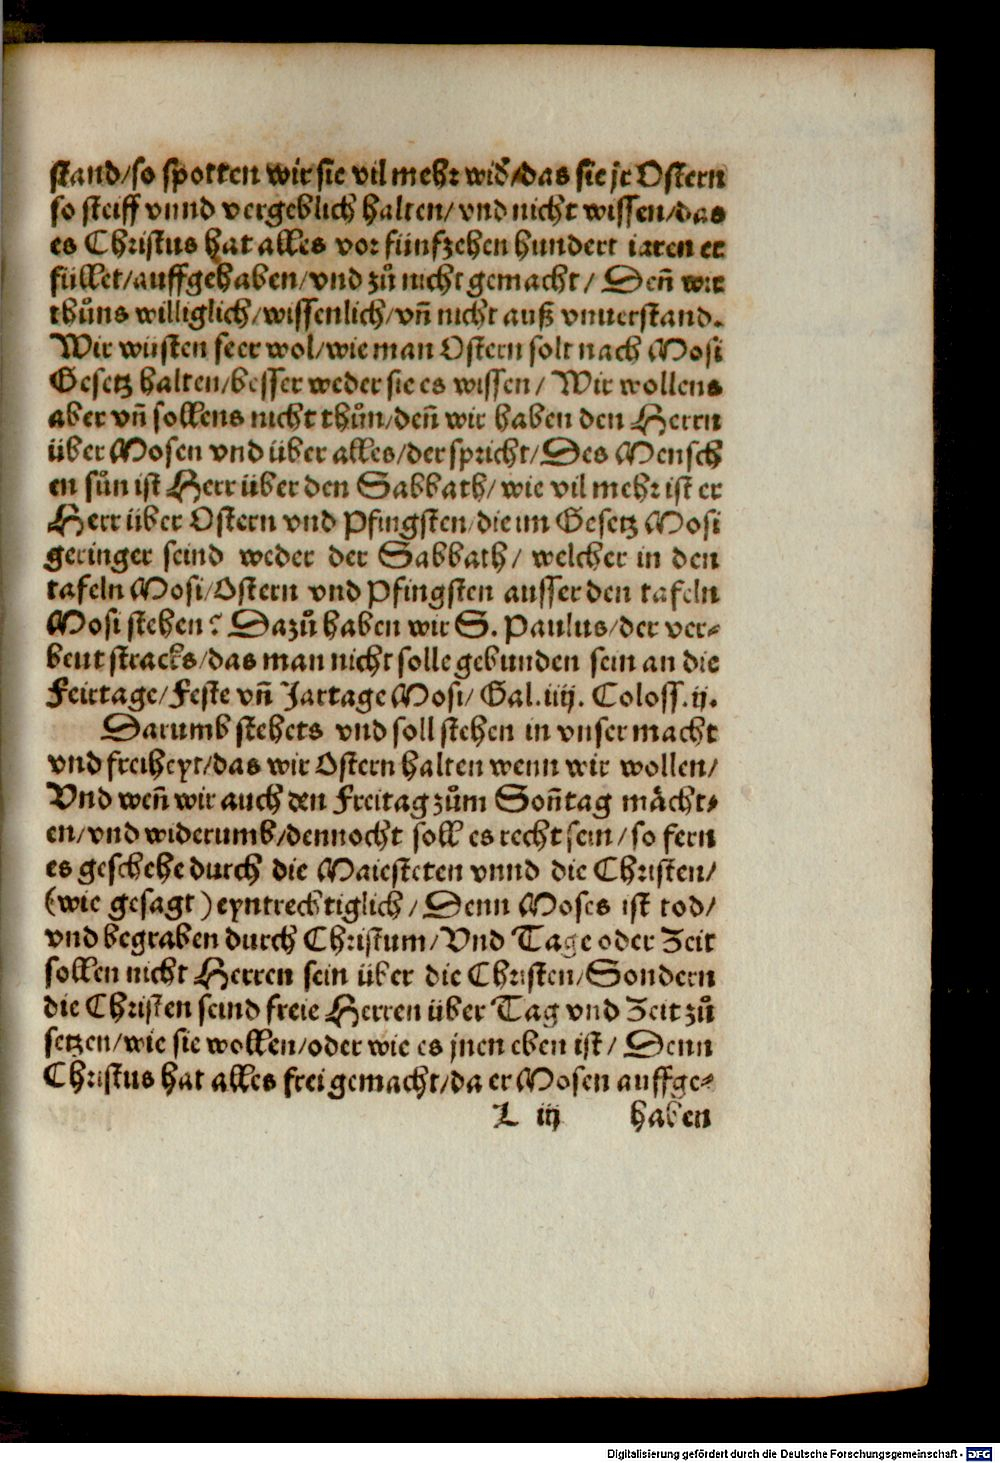 stand/so spotten wir sie vil mehr wid̃/das sie jr Ostern
so steiff vnnd vergeblich halten/vnd nicht wissen/das
es Christus hat alles vor fünfzehen hundert iaren er
füllet/auffgehaben/vnd zů nicht gemacht/ Deñ wir
thůns williglich/wissenlich/vñ nicht auß vnuerstand.
Wir wüsten seer wol/wie man Ostern solt nach Mosi
Gesetz halten/besser weder sie es wissen/ Wir wollens
aber vñ sollens nicht thůn/deñ wir haben den Herrn
über Mosen vnd über alles/der spricht/Des Mensch
en sůn ist Herr über den Sabbath/wie vil mehr ist er
Herr über Ostern vnd Pfingsten/die im Gesetz Mosi
geringer seind weder der Sabbath/ welcher in den
tafeln Mosi/Ostern vnd Pfingsten ausser den tafeln
Mosi stehen? Dazů haben wir S. Paulus/der ver-
beut stracks/das man nicht solle gebunden sein an die
Feirtage/Feste vñ Jartage Mosi/ Gal.iiij. Coloss.ij.
Darumb stehets vnd soll stehen in vnser macht
vnd freiheyt/das wir Ostern halten wenn wir wollen/
Vnd weñ wir auch den Freitag zům Soñtag mächt-
en/vnd widerumb/dennocht soll es recht sein/so fern
es geschehe durch die Maiesteten vnnd die Christen/
(wie gesagt) eyntrechtiglich/Denn Moses ist tod/
vnd begraben durch Christum/Vnd Tage oder Zeit
sollen nicht Herren sein über die Christen/Sondern
die Christen seind freie Herren über Tag vnd Zeit zů
setzen/wie sie wollen/oder wie es jnen eben ist/ Denn
Christus hat alles frei gemacht/da er Mosen auffge-
L iij haben
Digitalisierung gefördert durch die Deutsche Forschungsgemeinschaft - DFG